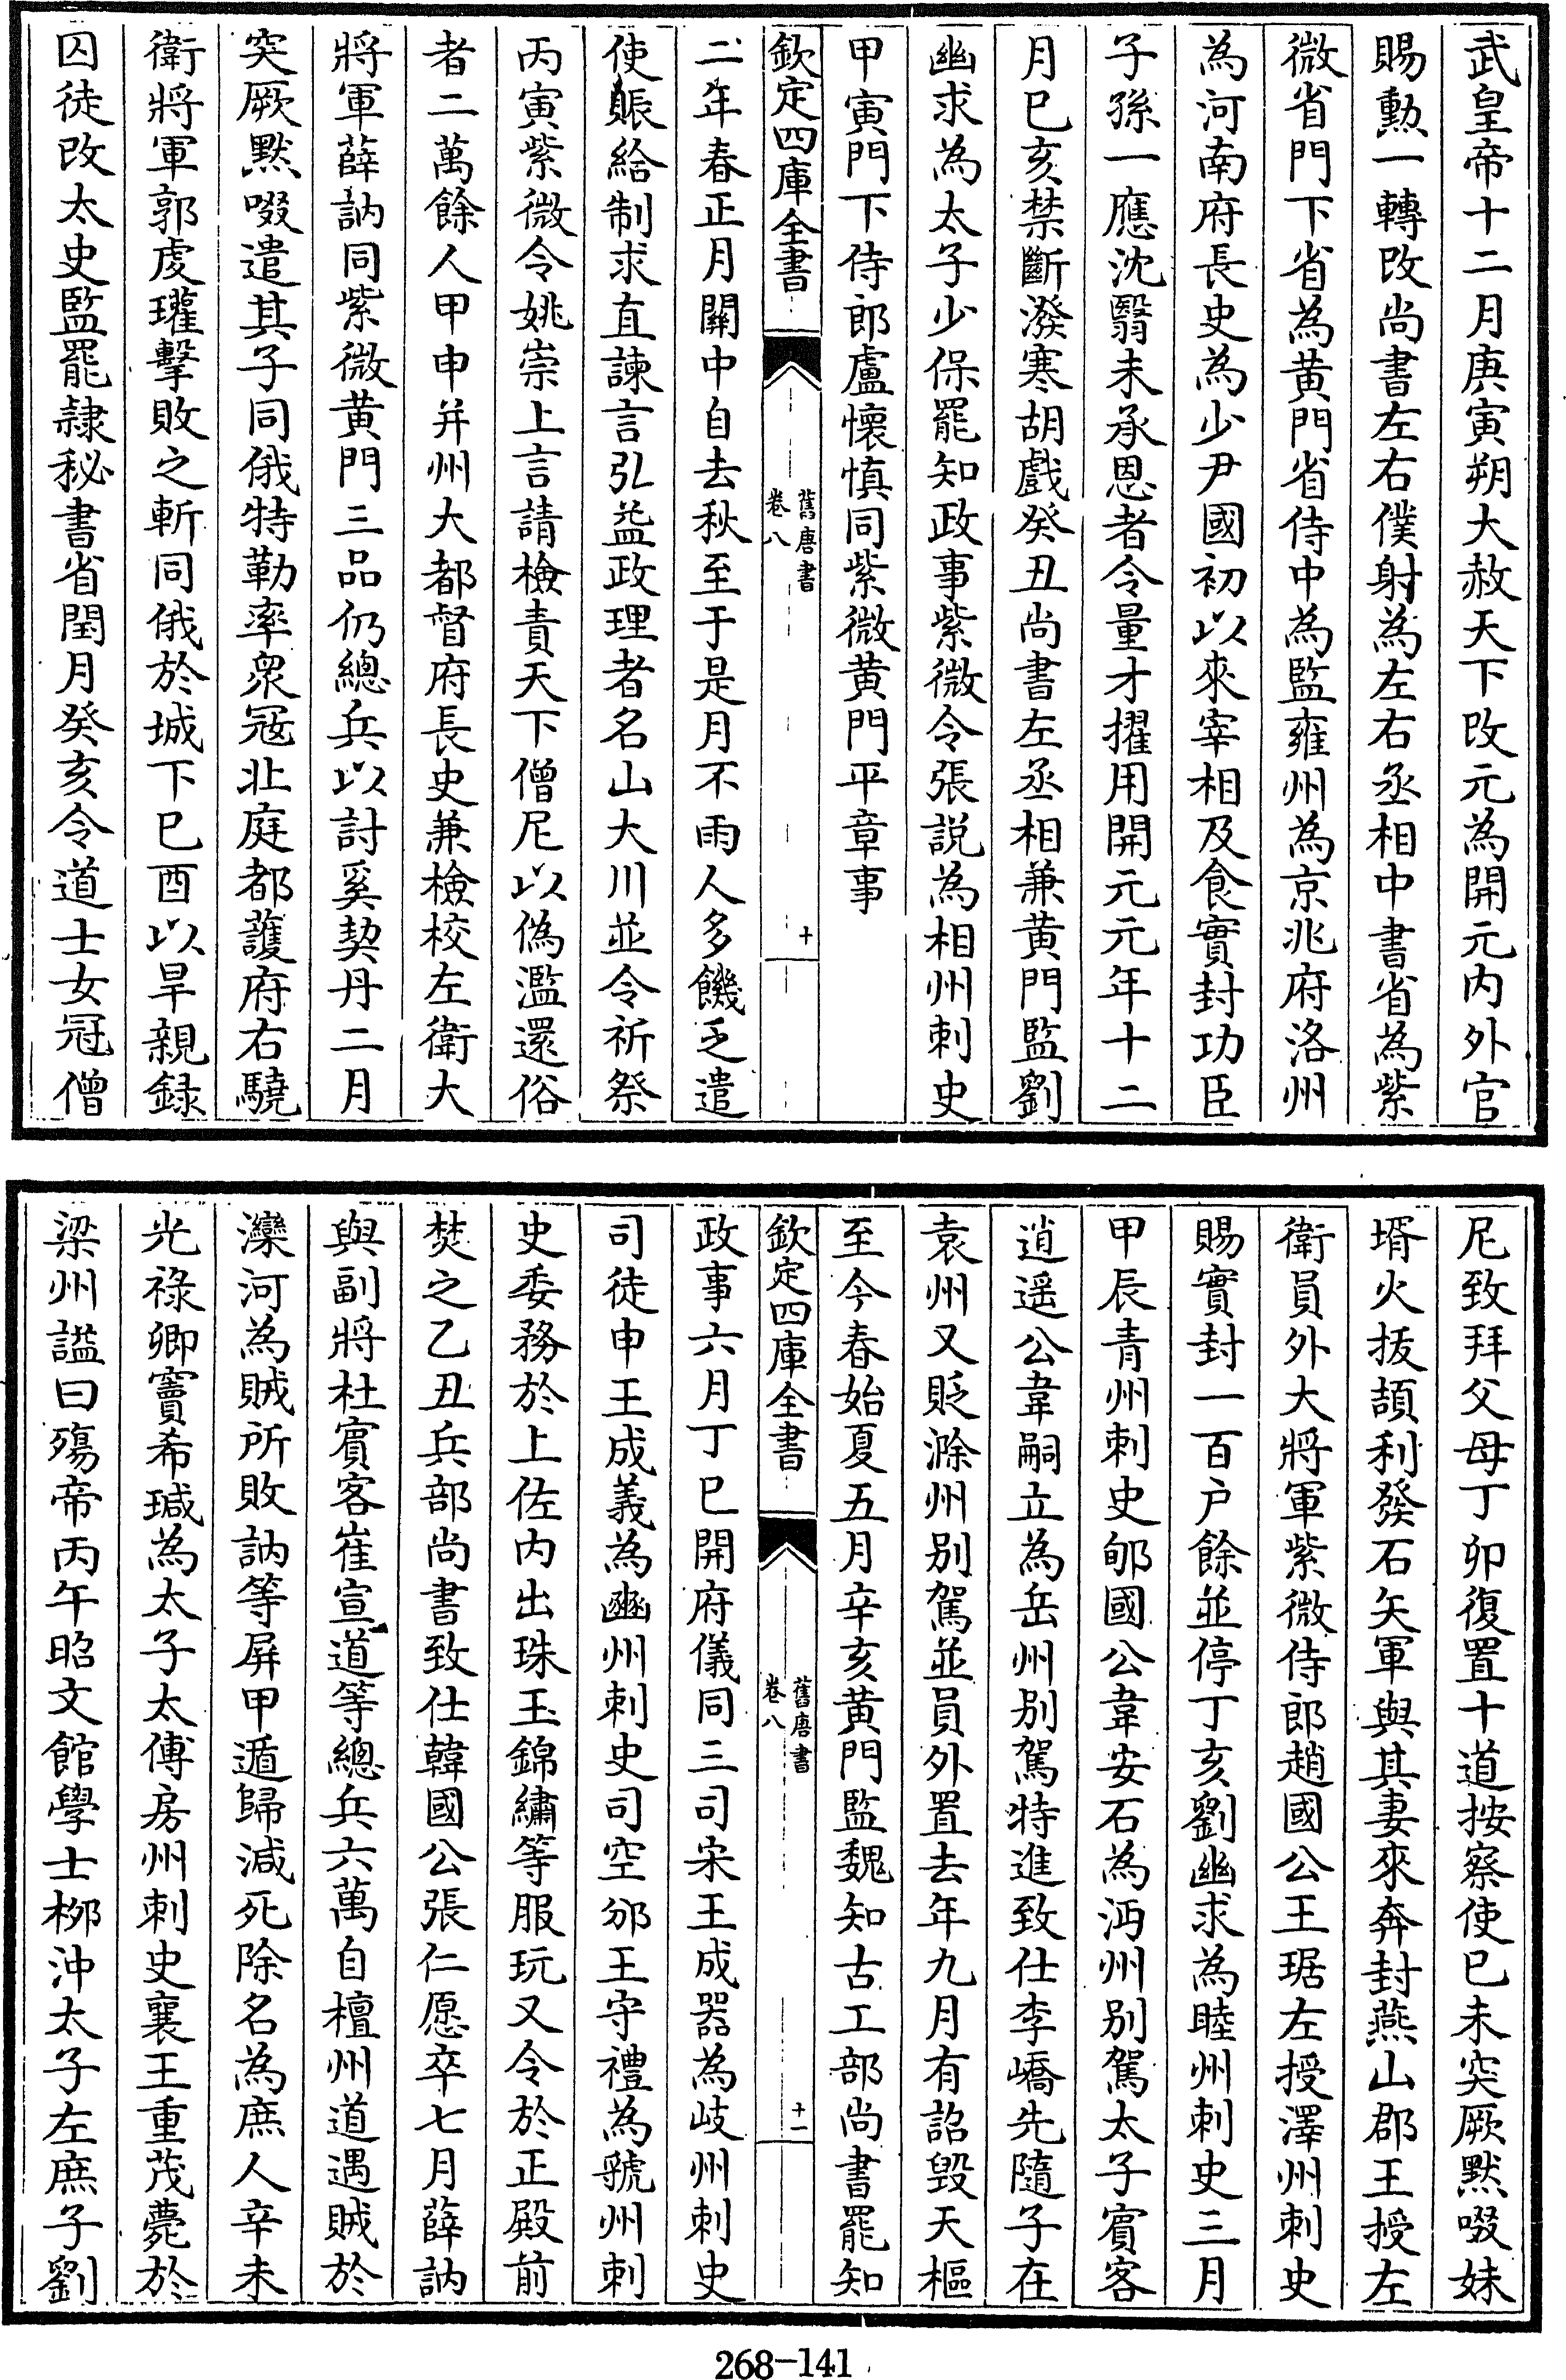 武皇帝十二月庚寅朔大赦天下改元為開元内外官
賜勲一轉改尚書左右僕射為左右丞相中書省為紫
微省門下省為黄門省侍中為監雍州為京兆府洛州
為河南府長史為少尹國初以來宰相及食實封功臣
子孫一應沈翳未承恩者令量才擢用開元元年十二
月巳亥禁斷潑寒胡戲癸丑尚書左丞相兼黄門監劉
幽求為太子少保罷知政事紫微令張説為相州刺史
甲寅門下侍郎盧懷慎同紫微黄門平章事
欽定四庫全書
舊唐書
卷八
十
二年春正月關中自去秋至于是月不雨人多饑乏遣
使賑給制求直諫言弘益政理者名山大川並令祈祭
丙寅紫微令姚崇上言請檢責天下僧尼以偽濫還俗
者二萬餘人甲申并州大都督府長史兼檢校左衛大
將軍薛訥同紫微黄門三品仍總兵以討奚契丹二月
突厥黙啜遣其子同俄特勒率衆寇北庭都護府右驍
衛將軍郭虔瓘擊敗之斬同俄於城下巳酉以旱親録
囚徒改太史監罷隷秘書省閏月癸亥令道士女冠僧
尼致拜父母丁卯復置十道按察使巳未突厥黙啜妹
壻火拔頡利發石矢軍與其妻來奔封燕山郡王授左
衛員外大將軍紫微侍郎趙國公王琚左授澤州刺史
賜實封一百户餘並停丁亥劉幽求為睦州刺史三月
甲辰青州刺史郇國公韋安石為沔州别駕太子賓客
逍遥公韋嗣立為岳州别駕特進致仕李嶠先隨子在
袁州又貶滁州别駕並員外置去年九月有詔毁天樞
至今春始夏五月辛亥黄門監魏知古工部尚書罷知
欽定四庫全書
舊唐書
卷八
十一
政事六月丁巳開府儀同三司宋王成器為岐州刺史
司徒申王成義為豳州刺史司空邠王守禮為虢州刺
史委務於上佐内出珠玉錦繡等服玩又令於正殿前
焚之乙丑兵部尚書致仕韓國公張仁愿卒七月薛訥
與副將杜賓客崔宣道等總兵六萬自檀州道遇賊於
灤河為賊所敗訥等屏甲遁歸減死除名為庶人辛未
光祿卿竇希瑊為太子太傅房州刺史襄王重茂薨於
梁州謚曰殤帝丙午昭文館學士柳沖太子左庶子劉
268-141